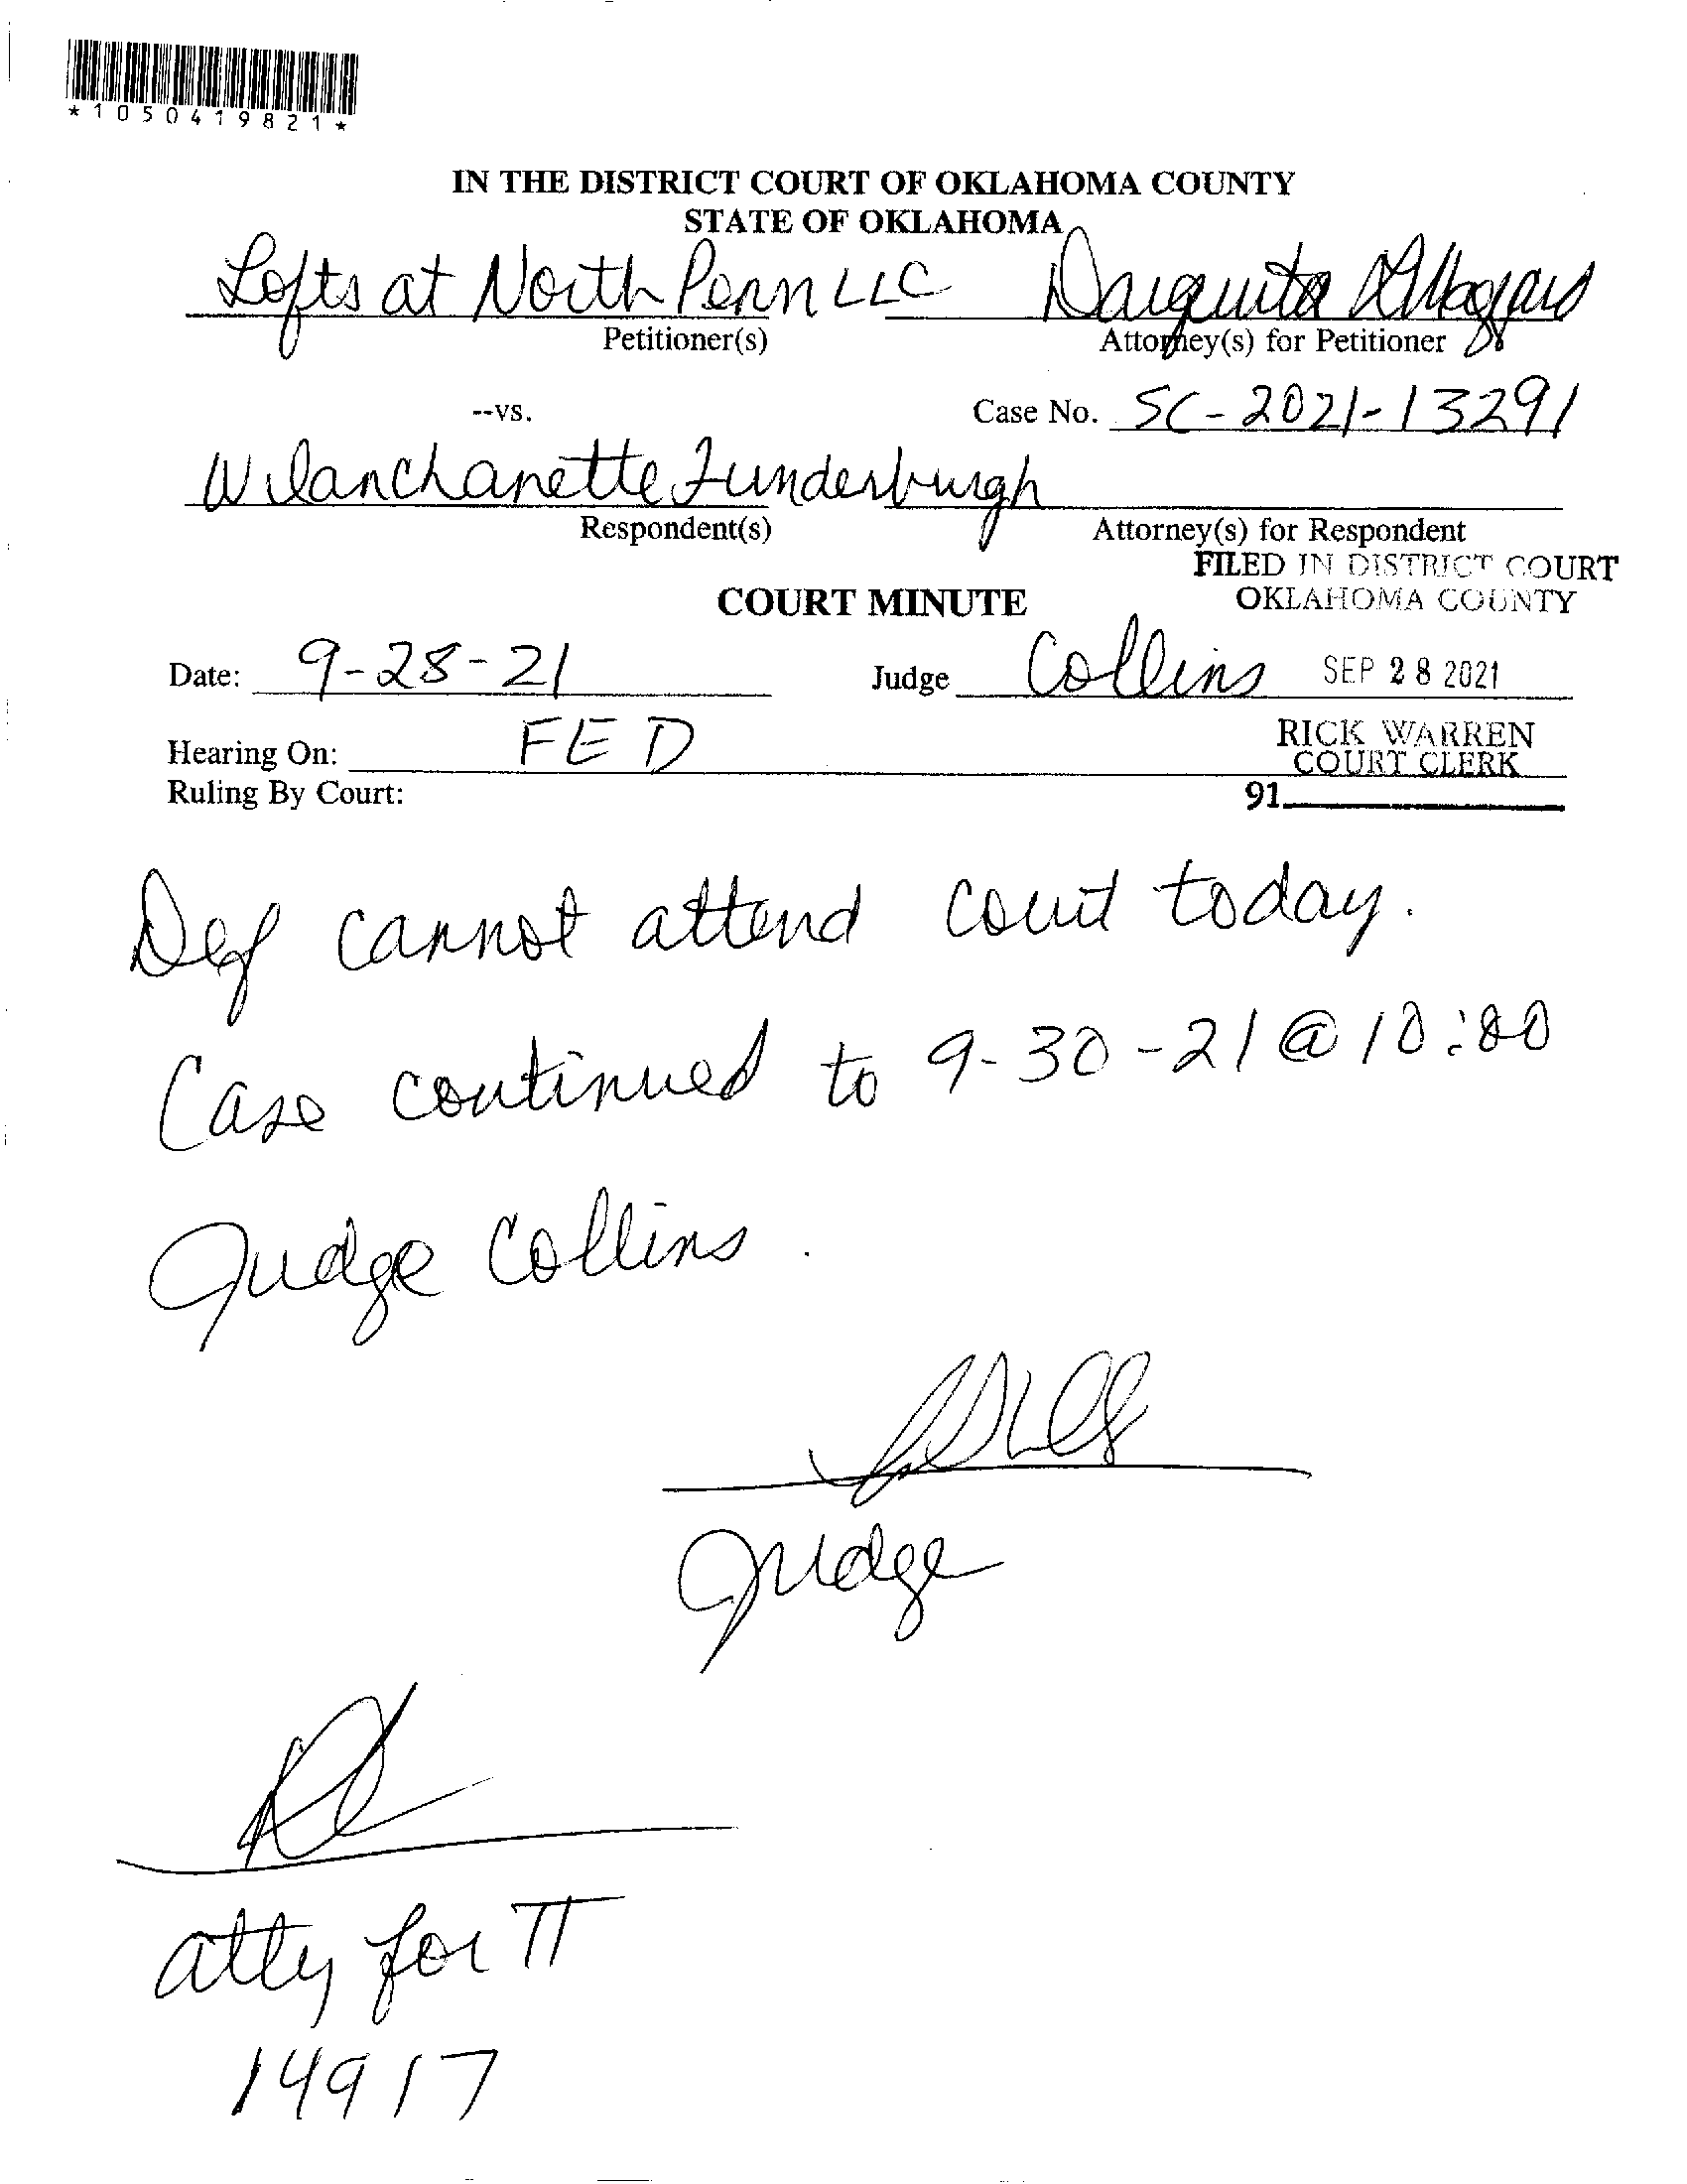 *1050419821*
IN THE DISTRICT COURT OF OKLAHOMA COUNTY
STATE OF OKLAHOMA
Lofts at North Penn LLC Darquita
Petitioner(s) Attorney(s) for Petitioner
--vs. Case No. SC-2021-13291
Wilanchanette Funderburgh
Respondent(s) Attorney(s) for Respondent
FILED IN DISTRICT COURT
OKLAHOMA COUNTY
COURT MINUTE
Date: 9-28-21 Judge Collins SEP 28 2021
Hearing On: FED RICK WARREN
COURT CLERK
Ruling By Court: 91
Def cannot attend court today.
Case continued to 9-30-21 @ 10:00
Judge Collins.
Judge
atty for π
14917